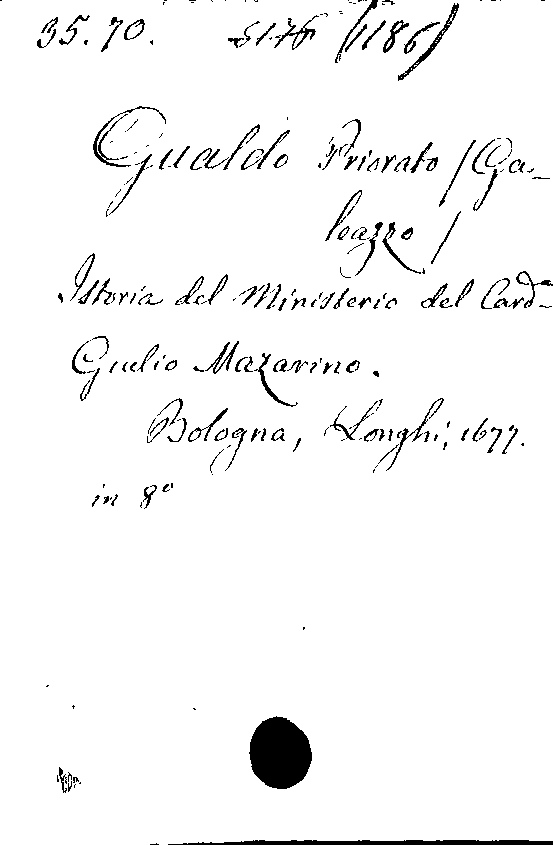 35.70. 5176 (1186)
Gualdo Priorato / Ga-
leazzo /
Istoria del Ministerio del Card-
Giulio Mazarino.
Bologna, Longhi, 1677.
in 8°